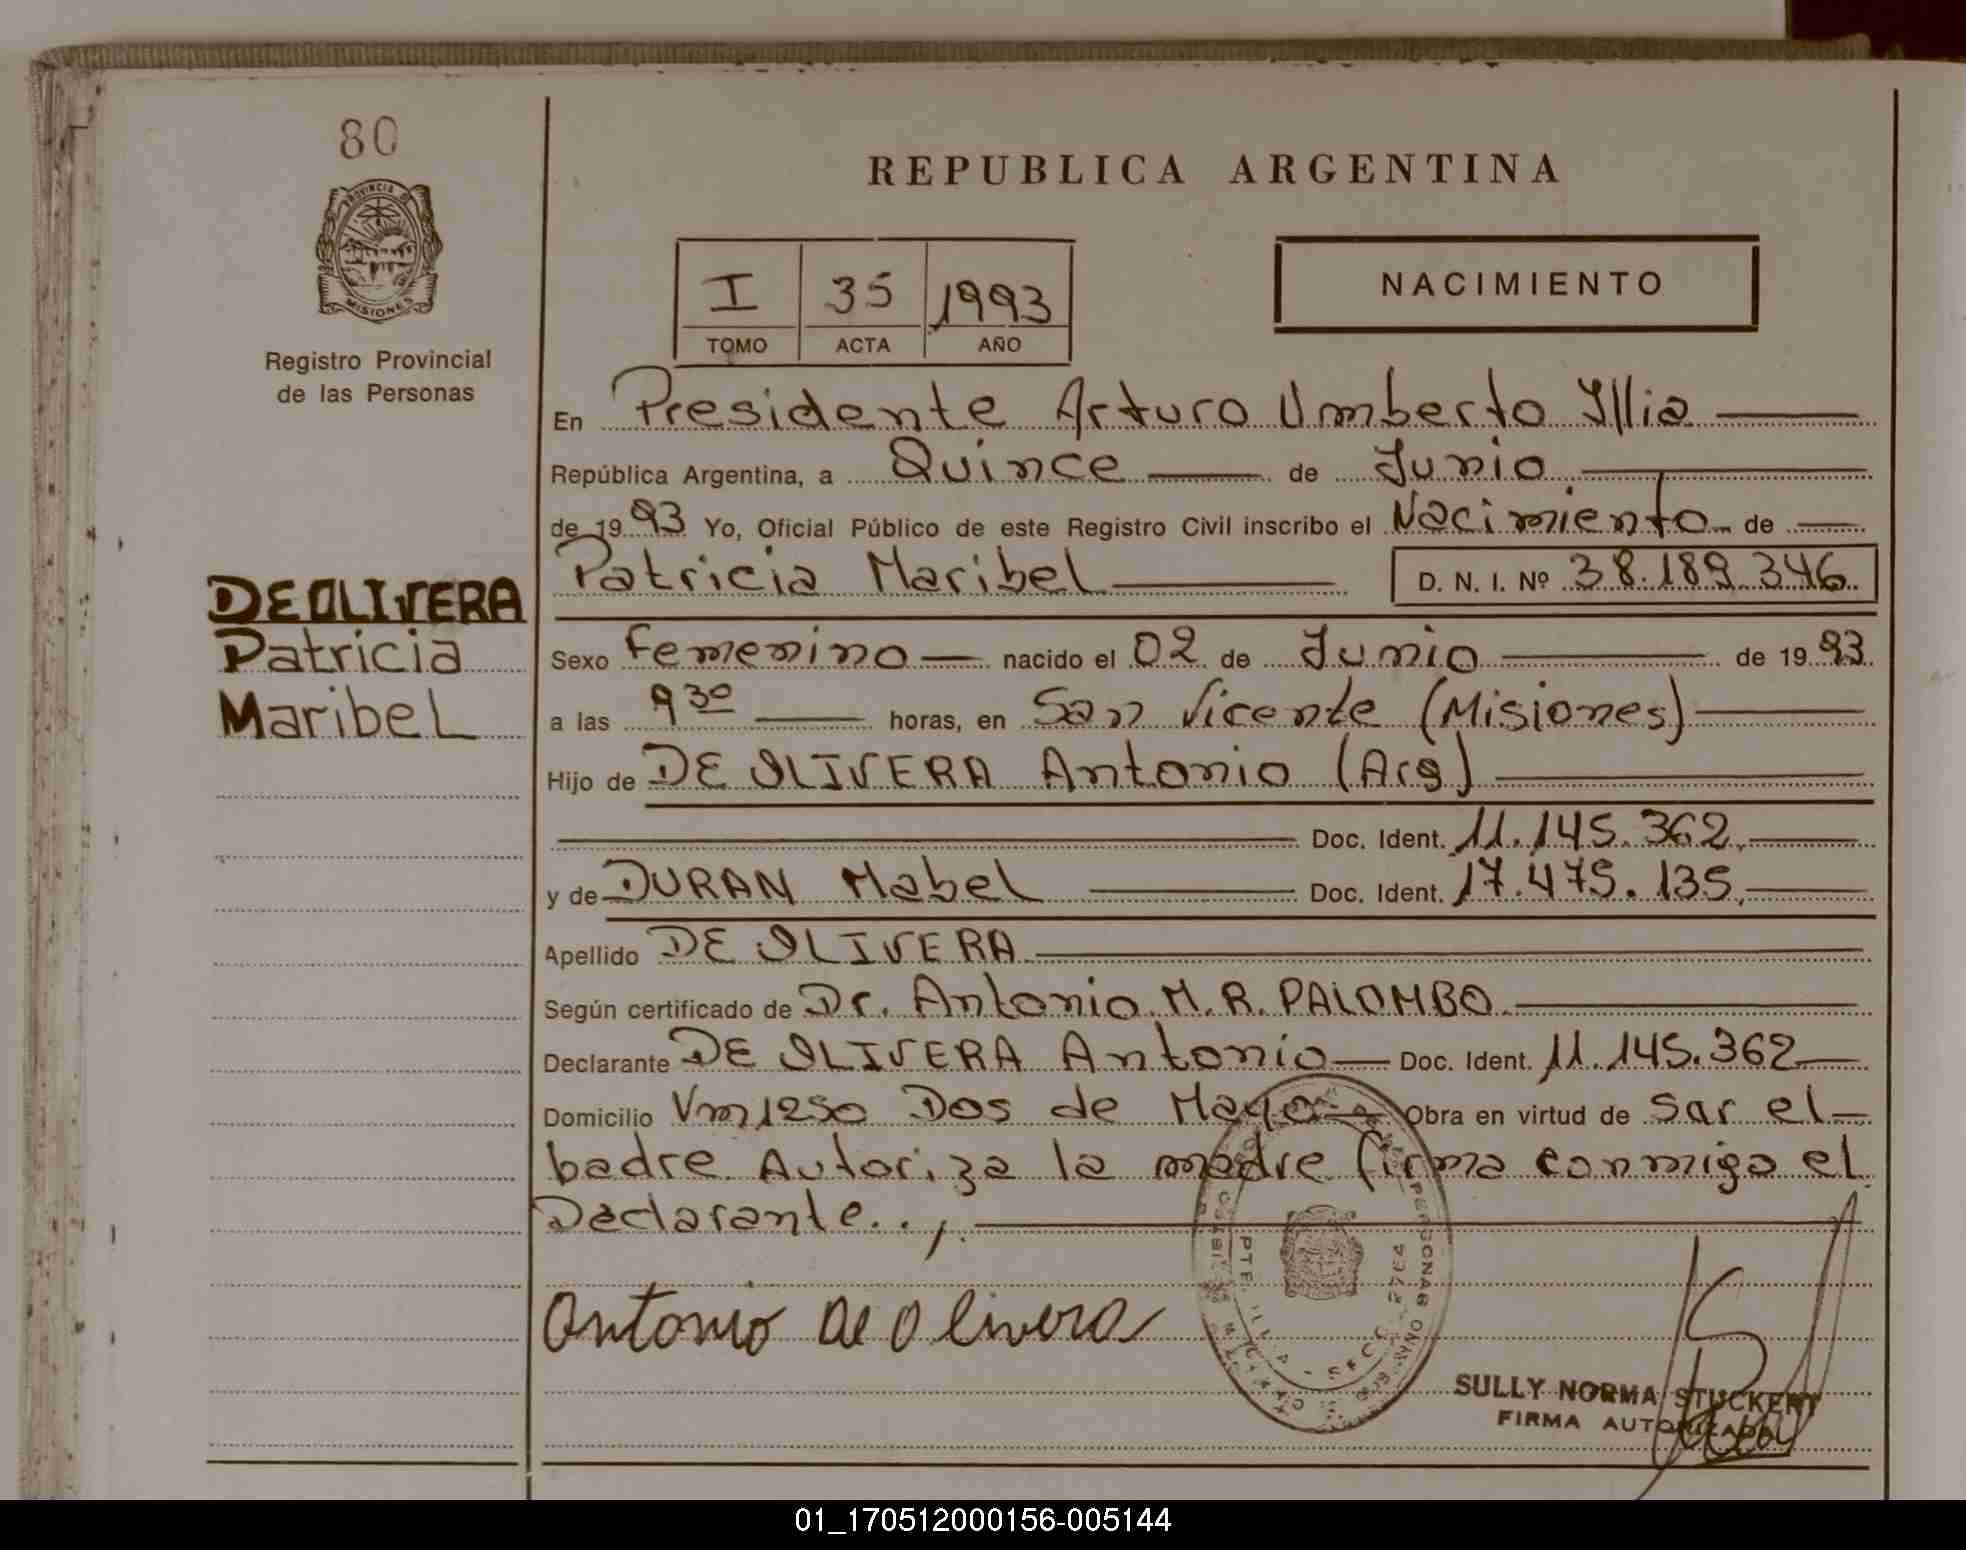 80
PROVINCIA
MISIONES
Registro Provincial
de las Personas
DE OLIVERA
Patricia
Maribel
REPUBLICA ARGENTINA
I 35 1993
TOMO ACTA AÑO
NACIMIENTO
En Presidente Arturo Umberto Illia
República Argentina, a Quince de Junio
de 1993 Yo, Oficial Público de este Registro Civil inscribo el Nacimiento de
Patricia Maribel D. N. I. Nº 38.189.346
Sexo Femenino nacido el 02 de Junio de 1993
a las 9 30 horas, en San Vicente (Misiones)
Hijo de DE OLIVERA Antonio (Arg)
Doc. Ident. 11.145.362
y de DURAN Mabel Doc. Ident. 17.475.135
Apellido DE OLIVERA
Según certificado de Dr. Antonio M. R. PALOMBO
Declarante DE OLIVERA Antonio Doc. Ident. 11.145.362
Domicilio Vm 1250 Dos de Mayo Obra en virtud de Sar el
badre Autoriza la madre firma conmigo el
Declarante..,.
Antonio de Olivera
PTE. ILLIA - SECC. 2734
PERSONAS
SULLY NORMA STUCKERT
FIRMA AUTORIZADA
01_170512000156-005144